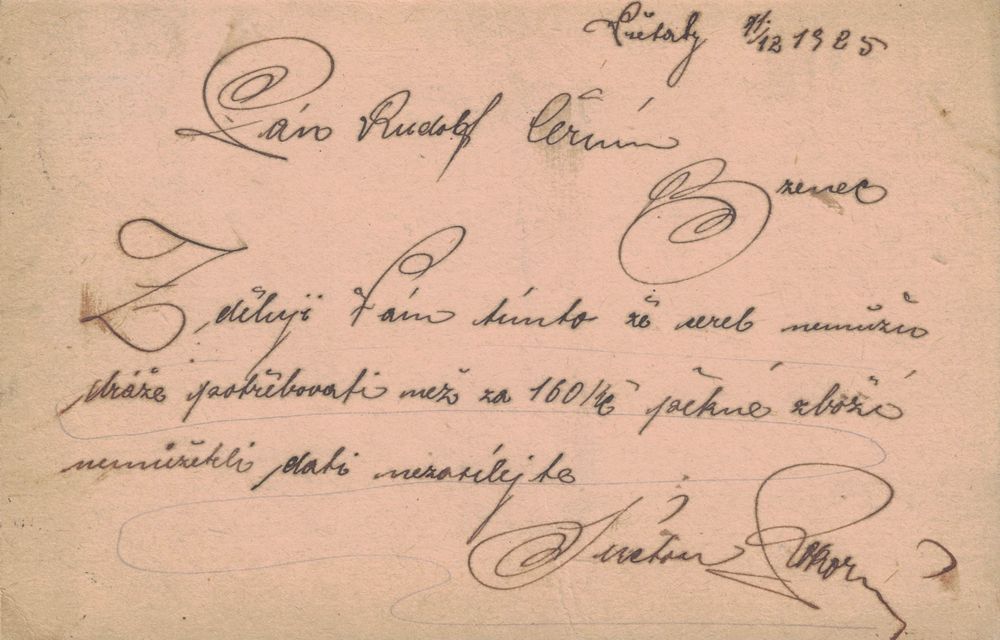 11/12 1925
Pán Rudolf Černín
Bzenec
Zděluji Vám tímto že sereb nemůžu
dráže potřebovati než za 160 Kč pěkné zboží
nemůžeteli dati nezasílejte